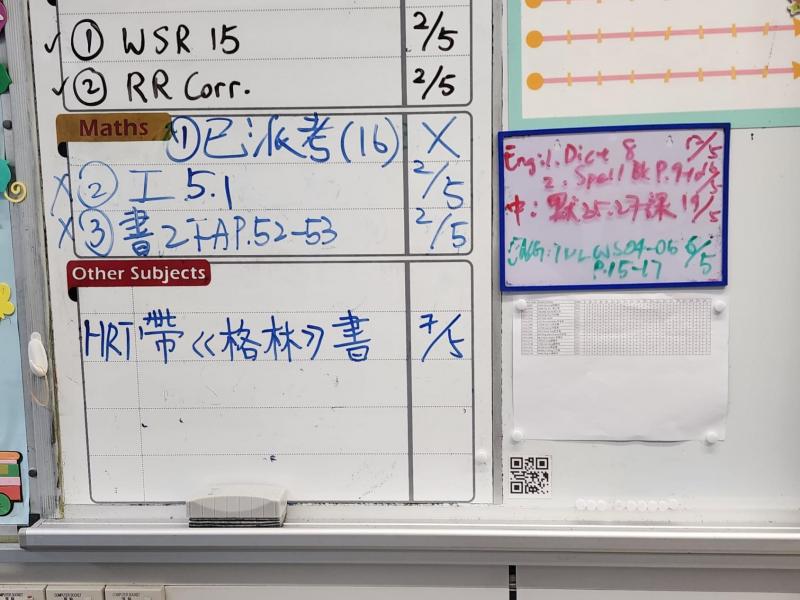 ① WSR 15 2/5
② RR Corr. 2/5
Maths
①已派考(16) X
X ② 工 5.1 2/5
X ③ 書 2下A P.52-53 2/5
Other Subjects
HRT 帶《格林》書 7/5
Eng: 1. Dict 8 12/5
2. Spell Bk P.9
中: 默25.27課 19/5
WS04-06 6/5
P.15-17